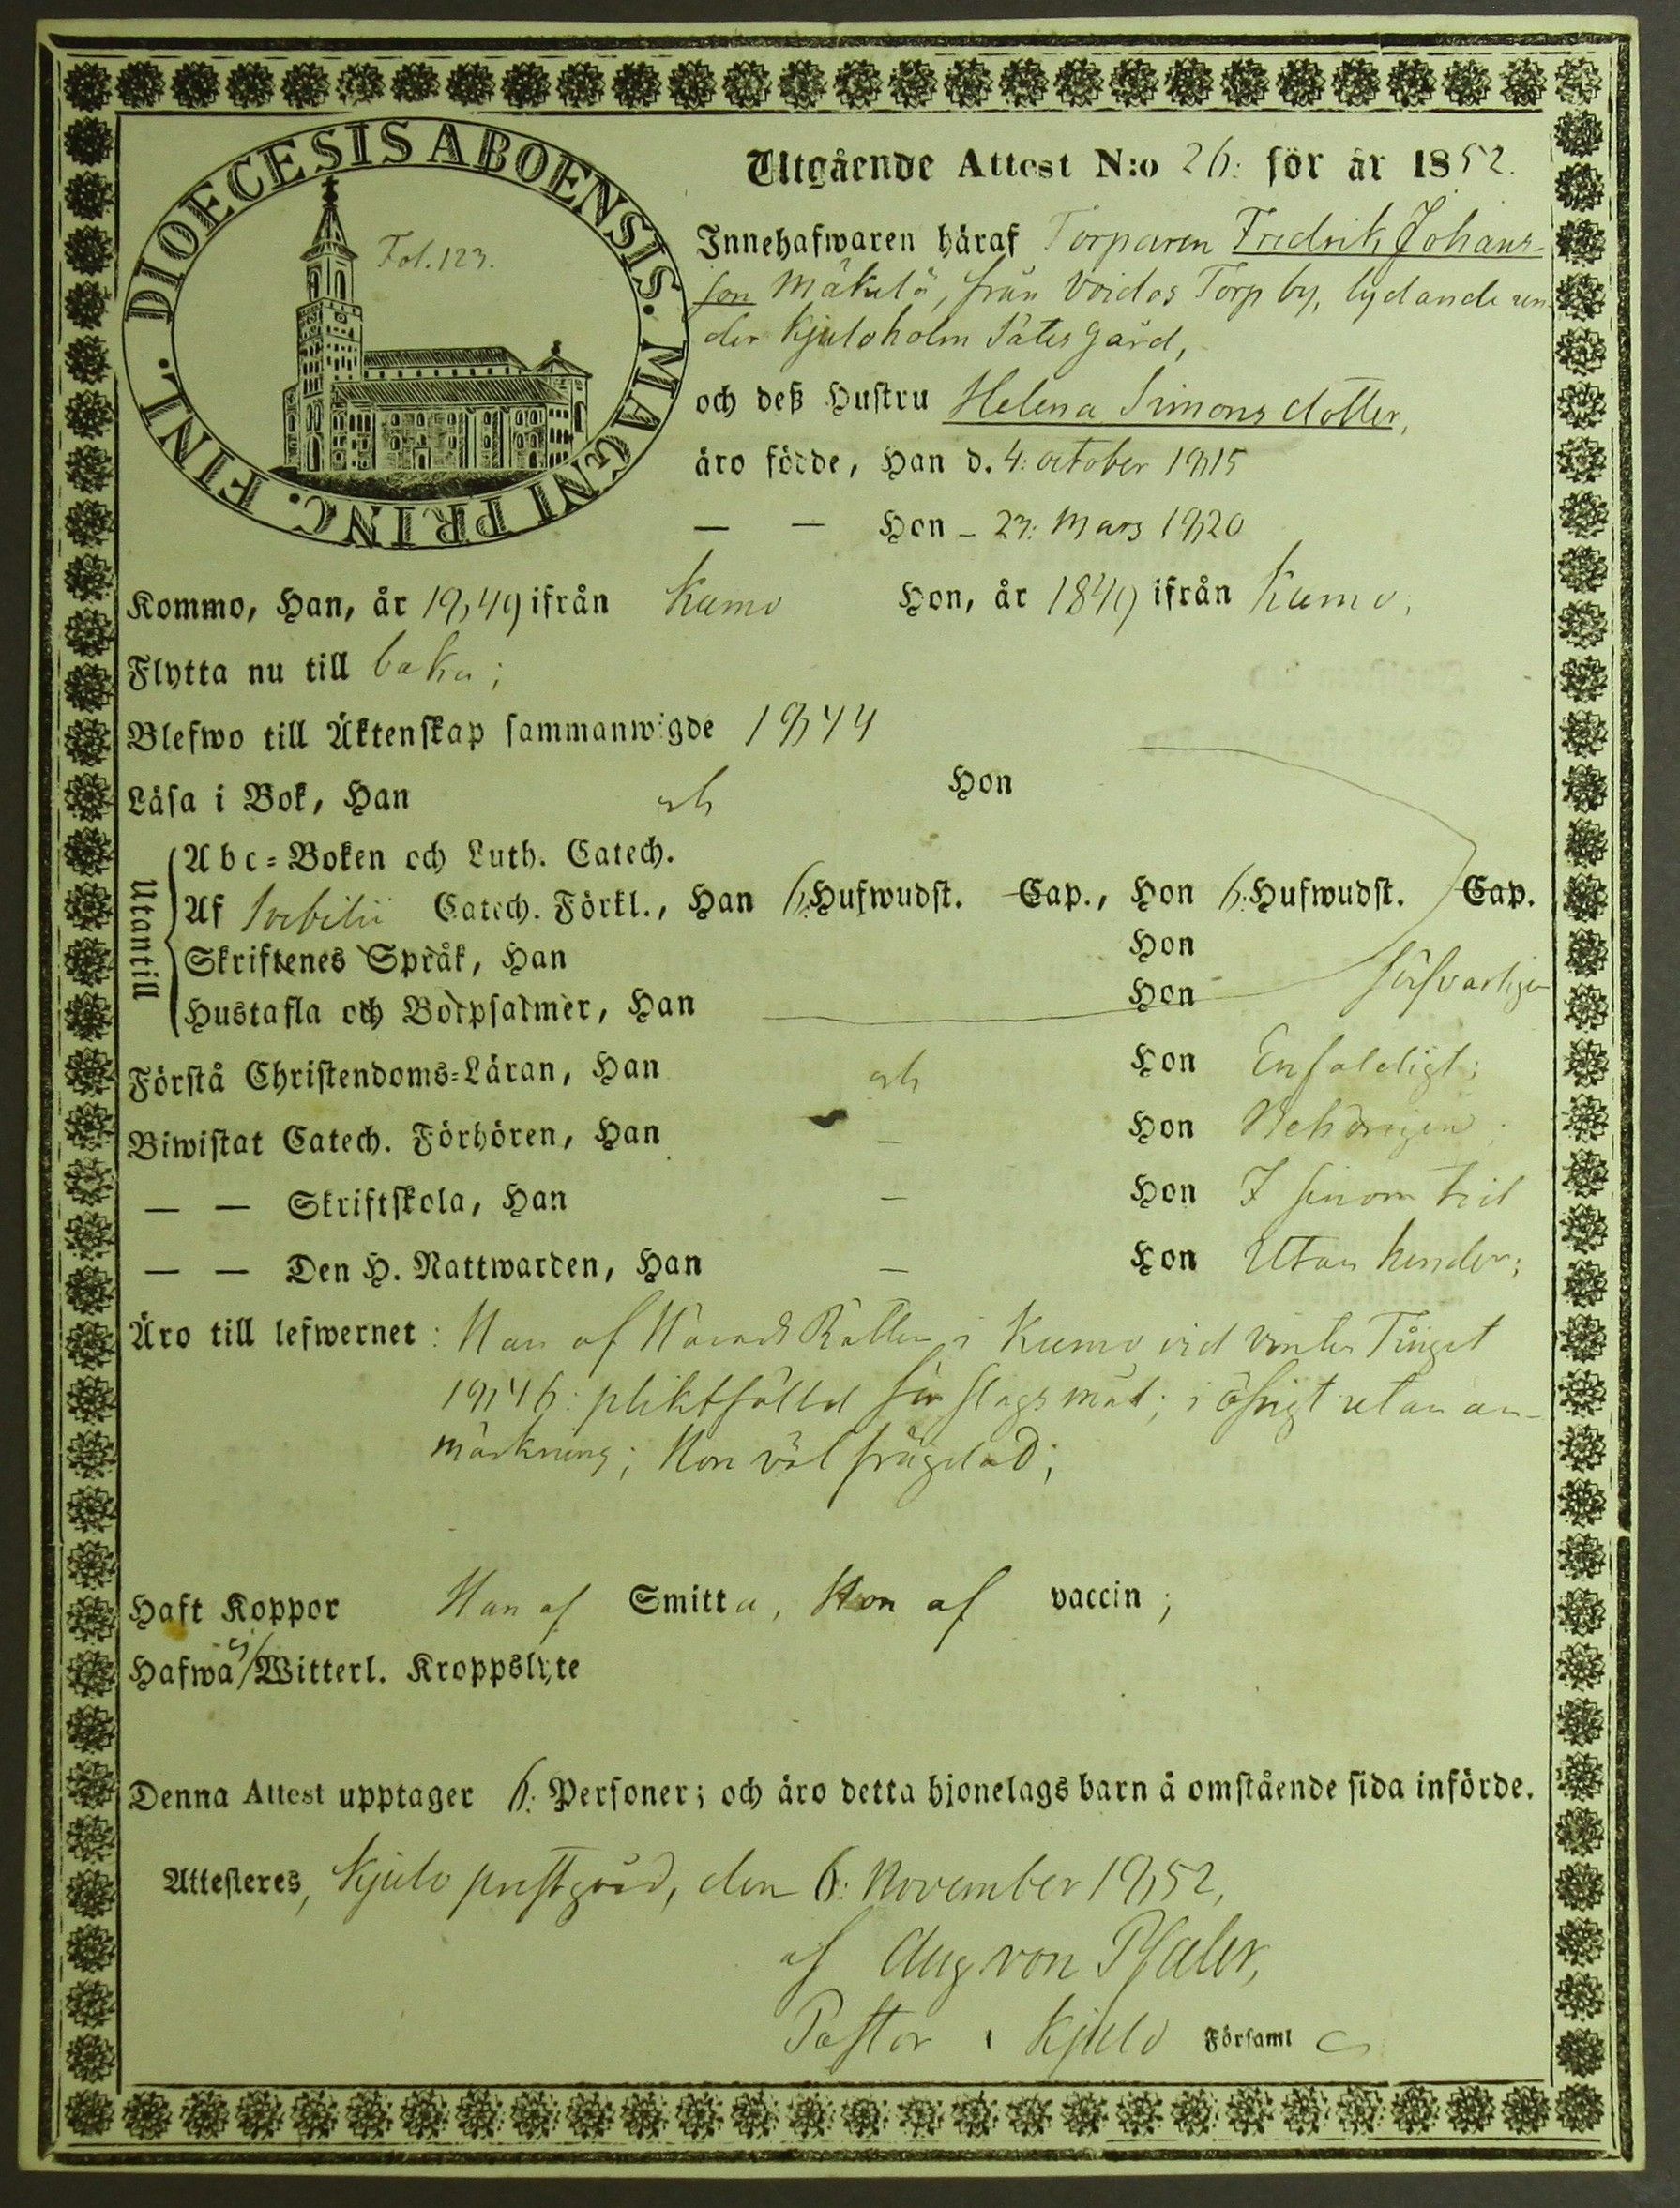 DIOECESIS ABOENSIS. MAGNI PRINC. FINL.
Fol. 123.
Utgående Attest N:o 26: för år 1852.
Innehafwaren häraf Torparen Fredrik Johans-
son Mäkelä, från Voidos Torp by, lydande un-
der Kjuloholm Sätesgård,
och deß Hustru Helena Simonsdotter,
äro födde, Han d. 4: october 1815
— — Hon - 23: Mars 1820
Kommo, Han, år 1849 ifrån Kumo Hon, år 1849 ifrån Kumo,
Flytta nu till baka;
Blefwo till Äktenskap sammanwigde 1844
Läsa i Bok, Han och Hon
Utantill
Abc-Boken och Luth. Catech.
Af Svebilii Catech. Förkl., Han 6: Hufwudst. Cap., Hon 6: Hufwudst. Cap.
Skriftenes Språk, Han Hon
Hustafla och Botpsalmer, Han Hon försvarligen
Förstå Christendoms-Läran, Han och Hon Enfaldigt;
Biwistat Catech. Förhören, Han — Hon Behörigen;
— — Skriftskola, Han — Hon I sinom tid
— — Den H. Nattwarden, Han — Hon Utan hinder;
Äro till lefwernet: Han af Härads Rätten i Kumo vid vinter Tinget
1846: pliktfälld för slagsmål; i öfrigt utan an-
märkning; Hon väl frägdad;
Haft Koppor Han af Smitta, Hon af vaccin;
Hafwa ej Witterl. Kroppslyte
Denna Attest upptager 6: Personer; och äro detta hjonelags barn å omstående sida införde.
Attesteres, Kjulo prestgård, den 6: November 1852,
af Aug von Pfaler,
Pastor i Kjulo Församl